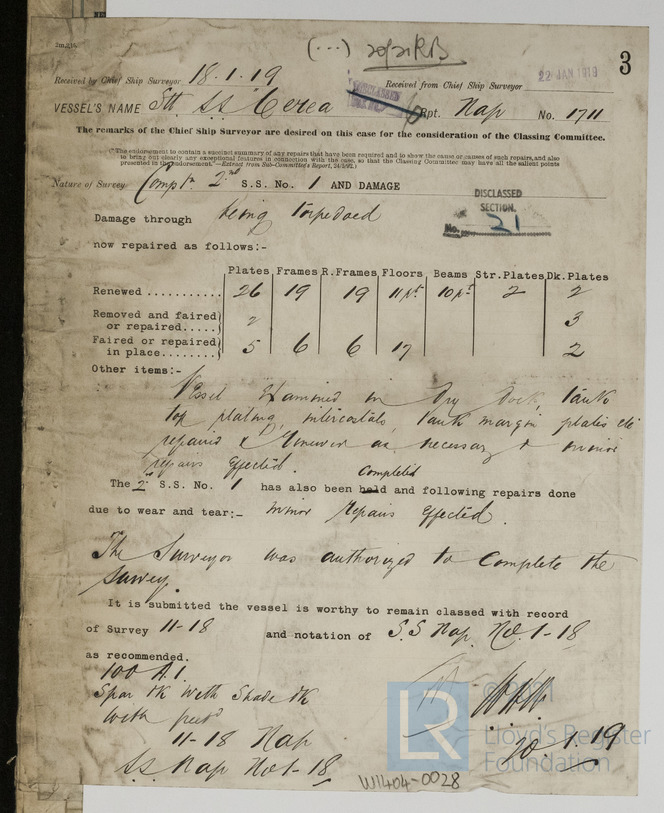 3
Received by Chief Ship Surveyor 18.1.19
Received from Chief Ship Surveyor
22 JAN 1919
VESSEL'S NAME Stl SS "Cerea" Rpt. Nap No. 1711
The remarks of the Chief Ship Surveyor are desired on this case for the consideration of the Classing Committee.
(*The endorsement to contain a succinct summary of any repairs that have been required and to show the cause or causes of such repairs, and also
to bring out clearly any exceptional features in connection with the case, so that the Classing Committee may have all the salient points
presented in the endorsement."—Extract from Sub-Committee's Report, 24/1/02.)
Nature of Survey Compln. 2nd S.S. No. 1 AND DAMAGE
DISCLASSED
SECTION.
No. 21
Damage through being torpedoed
now repaired as follows:-
Plates Frames R.Frames Floors Beams Str.Plates Dk.Plates
Renewed ........... 26 19 19 11 pt. 10 pt. 2 2
Removed and faired
or repaired..... 2 3
Faired or repaired
in place........ 5 6 6 17 2
Other items:-
Vessel examined in dry dock, tank
top plating, intercostals, tank margin plates etc
repaired & renewed as necessary & minor
repairs effected.
completed
The 2nd S.S. No. 1 has also been held and following repairs done
due to wear and tear:- minor repairs effected.
The Surveyor was authorized to complete the
survey.
It is submitted the vessel is worthy to remain classed with record
of Survey 11-18 and notation of S.S Nap. No. 1-18
as recommended.
100 A.1.
Spar dk with Shade dk
with freebd
11-18 Nap
S.S. Nap No 1-18
20.1.19
LR
©2021
Lloyd's Register
Foundation
W1404-0028